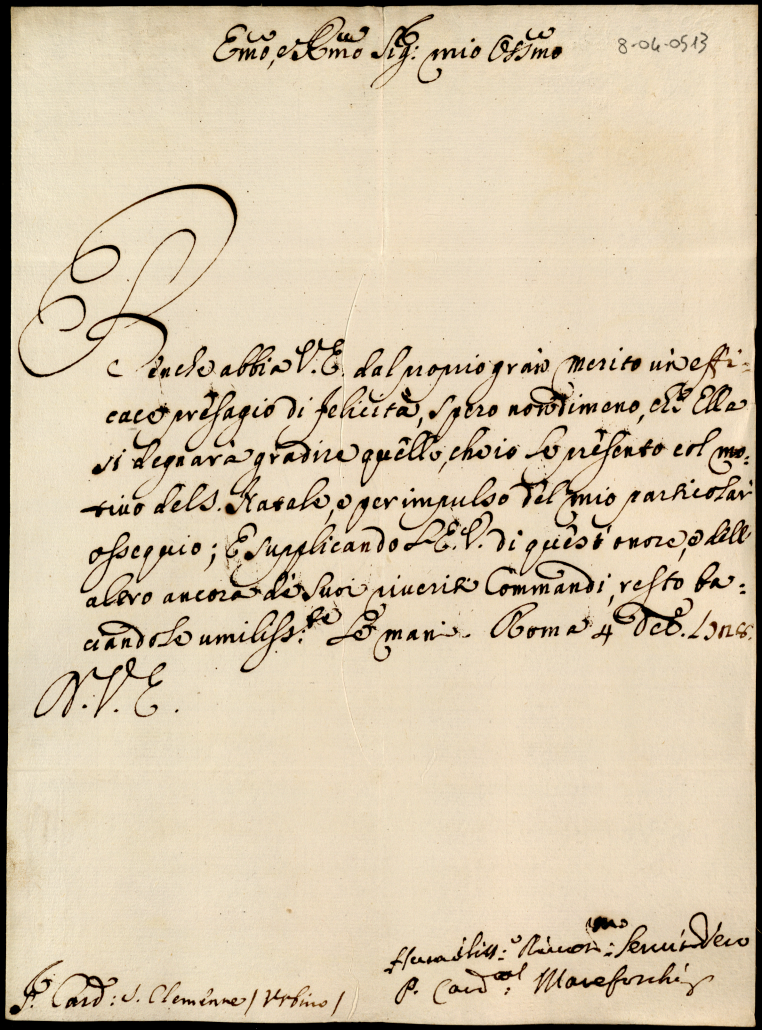 Emo, e Rmo Sig: mio Ossmo
8-04-0513
Benche abbia V.E. dal proprio gran merito un effi-
cace presagio di felicità, spero nondimeno, ch'Ella
si degnarà gradire quelle, che io le presento col mo-
tivo del S. Natale, e per impulso del mio particolar
ossequio; E supplicando L'E.V. di questi onore, e dell'
altro ancora de suoi riveriti Commandi, resto ba-
ciandole umiliss:te Le mani. Roma 4 Dcê.
D.V.E.
Humiliss: Servit. Vero
P. Card:al Marefoschi
Sr. Card: S. Clemente / Urbino /